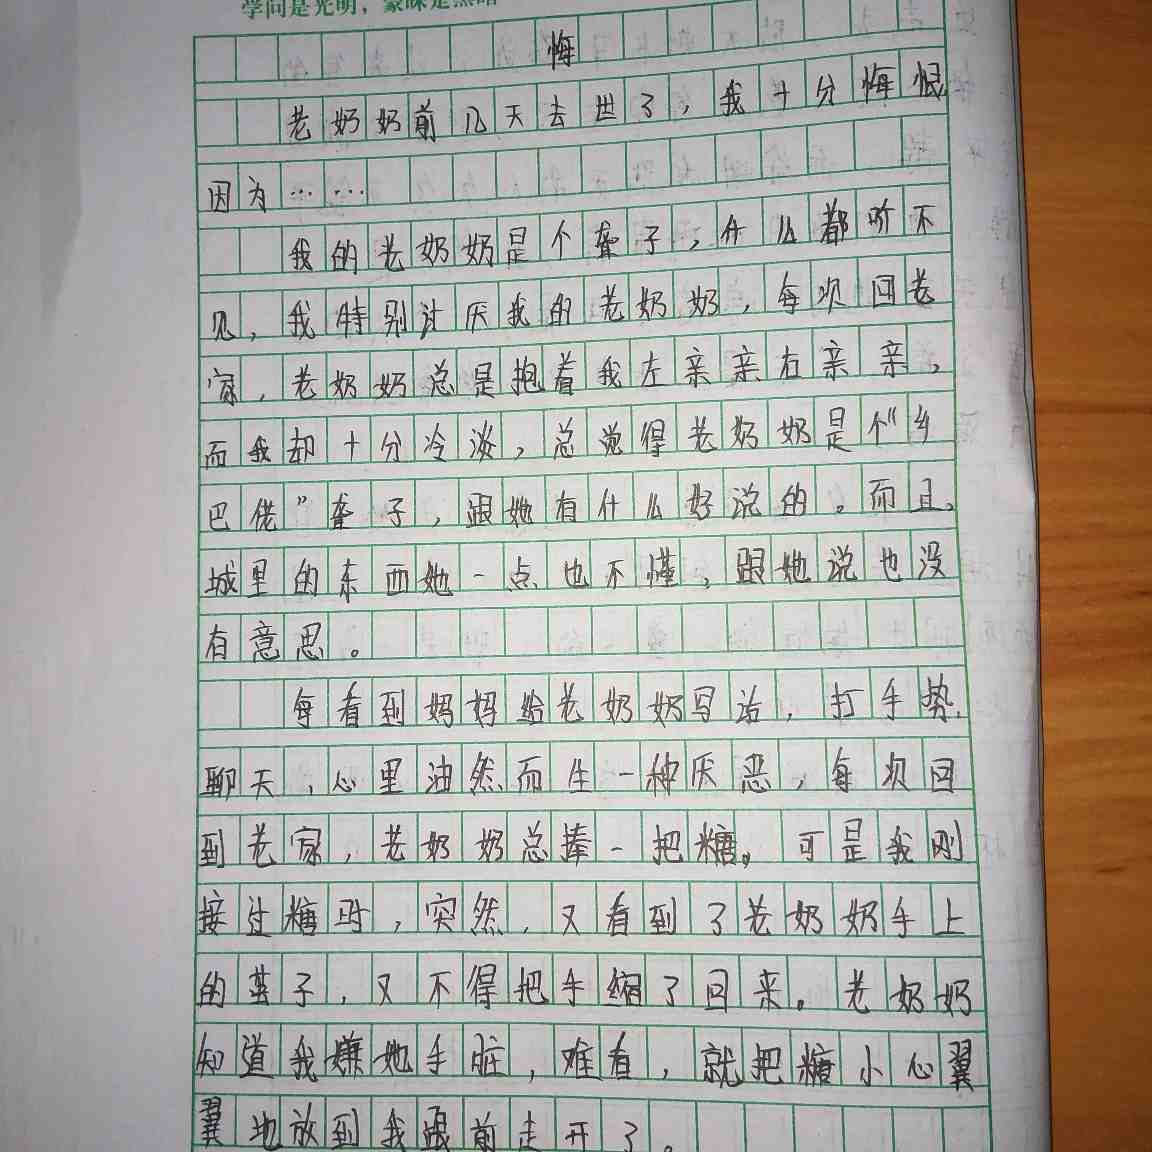 学问是光明，蒙昧是黑暗
悔
老奶奶前几天去世了，我十分悔恨
因为……
我的老奶奶是个聋子，什么都听不
见，我特别讨厌我的老奶奶，每次回老
家，老奶奶总是抱着我左亲亲右亲亲，
而我却十分冷淡，总觉得老奶奶是个“乡
巴佬”聋子，跟她有什么好说的。而且，
城里的东西她一点也不懂，跟她说也没
有意思。
每看到妈妈给老奶奶写话，打手势，
聊天，心里油然而生一种厌恶，每次回
到老家，老奶奶总捧一把糖。可是我刚
接过糖时，突然，又看到了老奶奶手上
的茧子，又不得把手缩了回来。老奶奶
知道我嫌她手脏，难看，就把糖小心翼
翼地放到我跟前走开了。